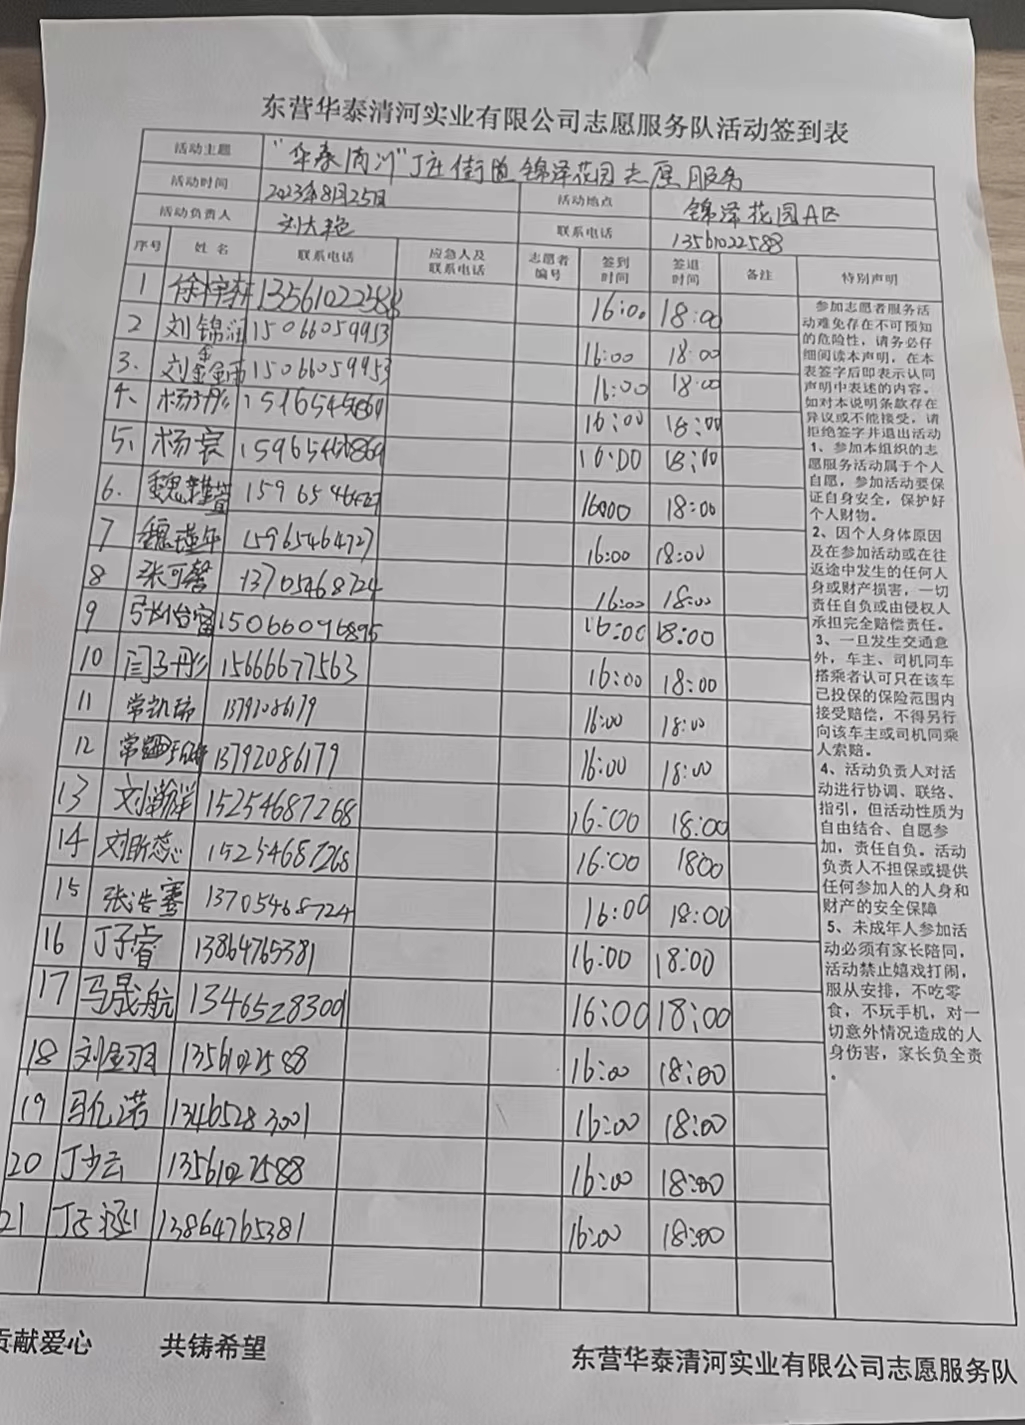 东营华泰清河实业有限公司志愿服务队活动签到表
活动主题 "华泰清河"丁庄街道锦泽花园志愿服务
活动时间 2023年8月25日 活动地点 锦泽花园A区
活动负责人 刘大艳 联系电话 13561022588
序号 姓名 联系电话 应急人及联系电话 志愿者编号 签到时间 签退时间 备注 特别声明
1 13561022588 16:00 18:00
2 刘锦润 15066059953 16:00 18:00
3. 15066059953 16:00 18:00
4、 16:00 18:00
5、 杨宸 16:00 18:00
6. 魏瑾萱 16:00 18:00
7 魏瑾年 15965464727 16:00 18:00
8 张可馨 13705468724 16:00 18:00
9 16:00 18:00
10 闫子彤 15666677563 16:00 18:00
11 常凯琦 16:00 18:00
12 13792086179 16:00 18:00
13 15254687268 16:00 18:00
14 刘昕蕊 15254687268 16:00 18:00
15 张浩骞 13705468724 16:00 18:00
16 丁子睿 13864765381 16:00 18:00
17 马晟航 13465283001 16:00 18:00
18 刘金羽 13561022588 16:00 18:00
19 马亿诺 13465283001 16:00 18:00
20 丁少云 13561022588 16:00 18:00
21 13864765381 16:00 18:00
参加志愿者服务活
动难免存在不可预知
的危险性，请务必仔
细阅读本声明，在本
表签字后即表示认同
声明中表述的内容。
如对本说明条款存在
异议或不能接受，请
拒绝签字并退出活动
1、参加本组织的志
愿服务活动属于个人
自愿，参加活动要保
证自身安全，保护好
个人财物。
2、因个人身体原因
及在参加活动或在往
返途中发生的任何人
身或财产损害，一切
责任自负或由侵权人
承担完全赔偿责任。
3、一旦发生交通意
外，车主、司机同车
搭乘者认可只在该车
已投保的保险范围内
接受赔偿，不得另行
向该车主或司机同乘
人索赔。
4、活动负责人对活
动进行协调、联络、
指引，但活动性质为
自由结合、自愿参
加，责任自负。活动
负责人不担保或提供
任何参加人的人身和
财产的安全保障
5、未成年人参加活
动必须有家长陪同，
活动禁止嬉戏打闹，
服从安排，不吃零
食，不玩手机，对一
切意外情况造成的人
身伤害，家长负全责
。
贡献爱心 共铸希望 东营华泰清河实业有限公司志愿服务队